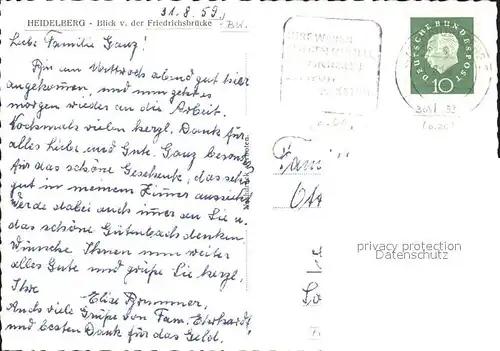 31.8.59.
HEIDELBERG - Blick v. der Friedrichsbrücke - BW.
Liebe Familie Ganz!
Bin am Mittwoch abend gut hier
angekommen, und nun geht es
morgen wieder an die Arbeit.
Nochmals vielen herzl. Dank für
alles Liebe und Gute. Ganz besond.
für das schöne Geschenk, das sehr
gut in meinem Zimmer aussieht
Werde dabei auch immer an Sie u.
das schöne Gütenbach denken.
Wünsche Ihnen nun weiter
alles Gute und grüße Sie herzl.
Ihre
Elise Brunner,
Auch viele Grüße von Fam. Ehrhardt
und besten Dank für das Geld.
DEUTSCHE BUNDESPOST
10
Fami
privacy protection
Datenschutz